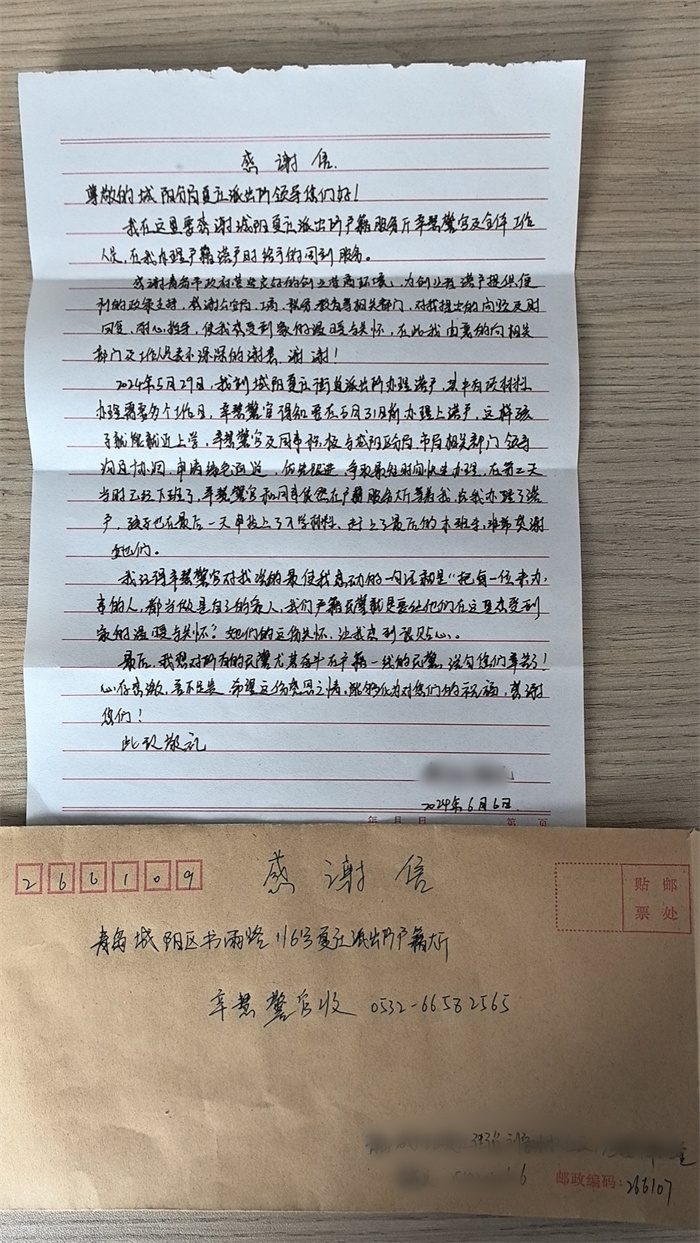 感谢信.
尊敬的城阳分局夏庄派出所领导您们好!
我在这里要感谢城阳夏庄派出所户籍服务厅辛慧警官及全体工作
人员,在我办理户籍落户时给予的周到服务。
感谢青岛市政府营造良好的创业营商环境,为创业者落户提供便
利的政策支持,感谢公安局、教育等相关部门,对我提出的问题及时
回复,耐心指导,使我感受到家的温暖与关怀,在此我由衷的向相关
部门及工作人员表示深深的谢意 谢谢!
2024年5月29日,我到城阳夏庄街道派出所办理落户,其中有项材料
办理需要多个工作日,辛慧警官得知要在5月31日前办理上落户,这样孩
子就能就近上学,辛慧警官及同事积极与城阳分局、市局相关部门领导
沟通协调,申请绿色通道,优先推进,争取最短时间快速办理,在第二天
当时已经下班了,辛慧警官和同事依然在户籍服务大厅等着我,给我办理了落
户,孩子也在最后一天早报上了入学材料,赶上了最后的末班车,非常感谢
她们。
我记得辛慧警官对我说的最使我感动的一句话就是“把每一位来办
事的人,都当做是自己的家人,我们户籍民警就是要让他们在这里感受到
家的温暖与关怀”她们的这份关怀,让我感到很贴心。
最后,我想对所有的民警尤其奋斗在户籍一线的民警,说句您们辛苦了!
心存感激,言不足表 希望这份感恩之情,能够化为对您们的祝福,感谢
您们!
此致敬礼
2024年6月6日.
年 月 日 第 页
266109
感谢信
贴邮
票处
青岛城阳区书雨路116号夏庄派出所户籍大厅
辛慧警官收 0532-66582565
邮政编码:266107